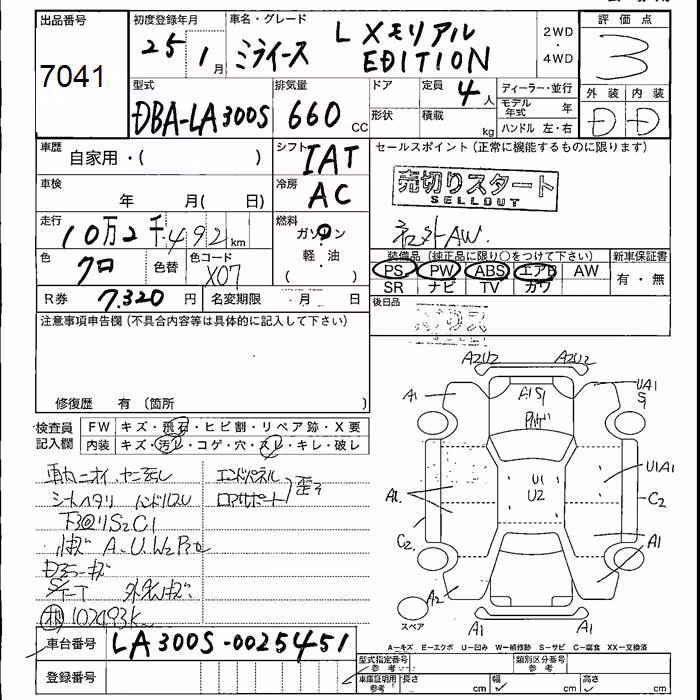 出品番号
7041
初度登録年月
25 1月
車名・グレード
ミライース L メモリアル EDITION
2WD
・
4WD
評価点
3
外装 内装
D D
型式
DBA-LA300S
排気量
660 CC
ドア
定員 4人
形状
積載 kg
ディーラー・並行
モデル年式 年
ハンドル 左・右
車歴
自家用・( )
シフト IAT
車検 年 月( 日)
冷房 AC
走行
10万2千492km
燃料
ガソリン
軽・油
( )
色
クロ
色替
色コード
X07
R券 7,320円
名変期限 ・ 月 日
セールスポイント(正常に機能するものに限ります)
売切りスタート
SELLOUT
社外AW.
装備品(純正品に限り○をつけて下さい) 新車保証書
PS PW ABS エアB AW
SR ナビ TV カワ
有・無
後日品
注意事項申告欄(不具合内容等は具体的に記入して下さい)
修復歴 有(箇所 )
検査員記入欄
FW キズ・飛石・ヒビ割・リペア跡・X要
内装 キズ・汚レ・コゲ・穴・スレ・キレ・破レ
シートヘタリ ハンドルスレ
エンドパネル
ロアサポート 歪ミ
下回りS2C1
A.U.W2
102493K
A2U2 A2U2
A1S1
UA1
S1
U1
U2
U1A1
A1.
C2
C2.
A1
A2
A1 A1
スペア
A-キズ E-エクボ U-凹み W-補修跡 S-サビ C-腐食 XX-交換済
車台番号 LA300S-0025451
登録番号
型式指定番号
参考
類別区分番号
参考
車庫証明用
参考
長さ cm
幅 cm
高さ cm